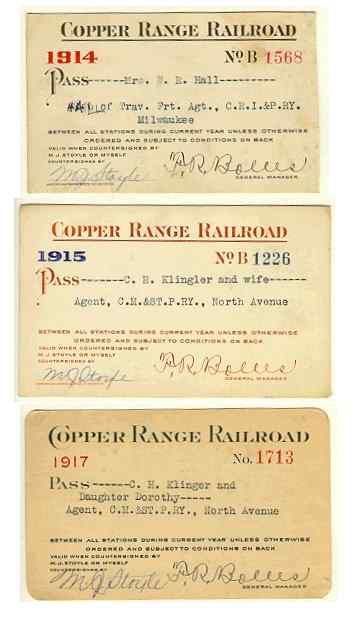 COPPER RANGE RAILROAD
1914 No B 1568
PASS------Mrs. E. R. Hall---------
of Trav. Frt. Agt., C.R.I.&P.RY.
Milwaukee
BETWEEN ALL STATIONS DURING CURRENT YEAR UNLESS OTHERWISE
ORDERED AND SUBJECT TO CONDITIONS ON BACK
VALID WHEN COUNTERSIGNED BY
M.J. STOYLE OR MYSELF
COUNTERSIGNED BY
M J Stoyle F. R. Bolles
GENERAL MANAGER
COPPER RANGE RAILROAD
1915 No B 1226
PASS-------C. H. Klingler and wife------
Agent, C.M.&ST.P.RY., North Avenue
BETWEEN ALL STATIONS DURING CURRENT YEAR UNLESS OTHERWISE
ORDERED AND SUBJECT TO CONDITIONS ON BACK
VALID WHEN COUNTERSIGNED BY
M.J. STOYLE OR MYSELF
COUNTERSIGNED BY
M J Stoyle F. R. Bolles
GENERAL MANAGER
COPPER RANGE RAILROAD
1917 No. 1713
PASS------C. H. Klinger and
Daughter Dorothy-----
Agent, C.M.&ST.P.RY., North Avenue
BETWEEN ALL STATIONS DURING CURRENT YEAR UNLESS OTHERWISE
ORDERED AND SUBJECT TO CONDITIONS ON BACK
VALID WHEN COUNTERSIGNED BY
M.J. STOYLE OR MYSELF
COUNTERSIGNED BY
M J Stoyle F. R. Bolles
GENERAL MANAGER